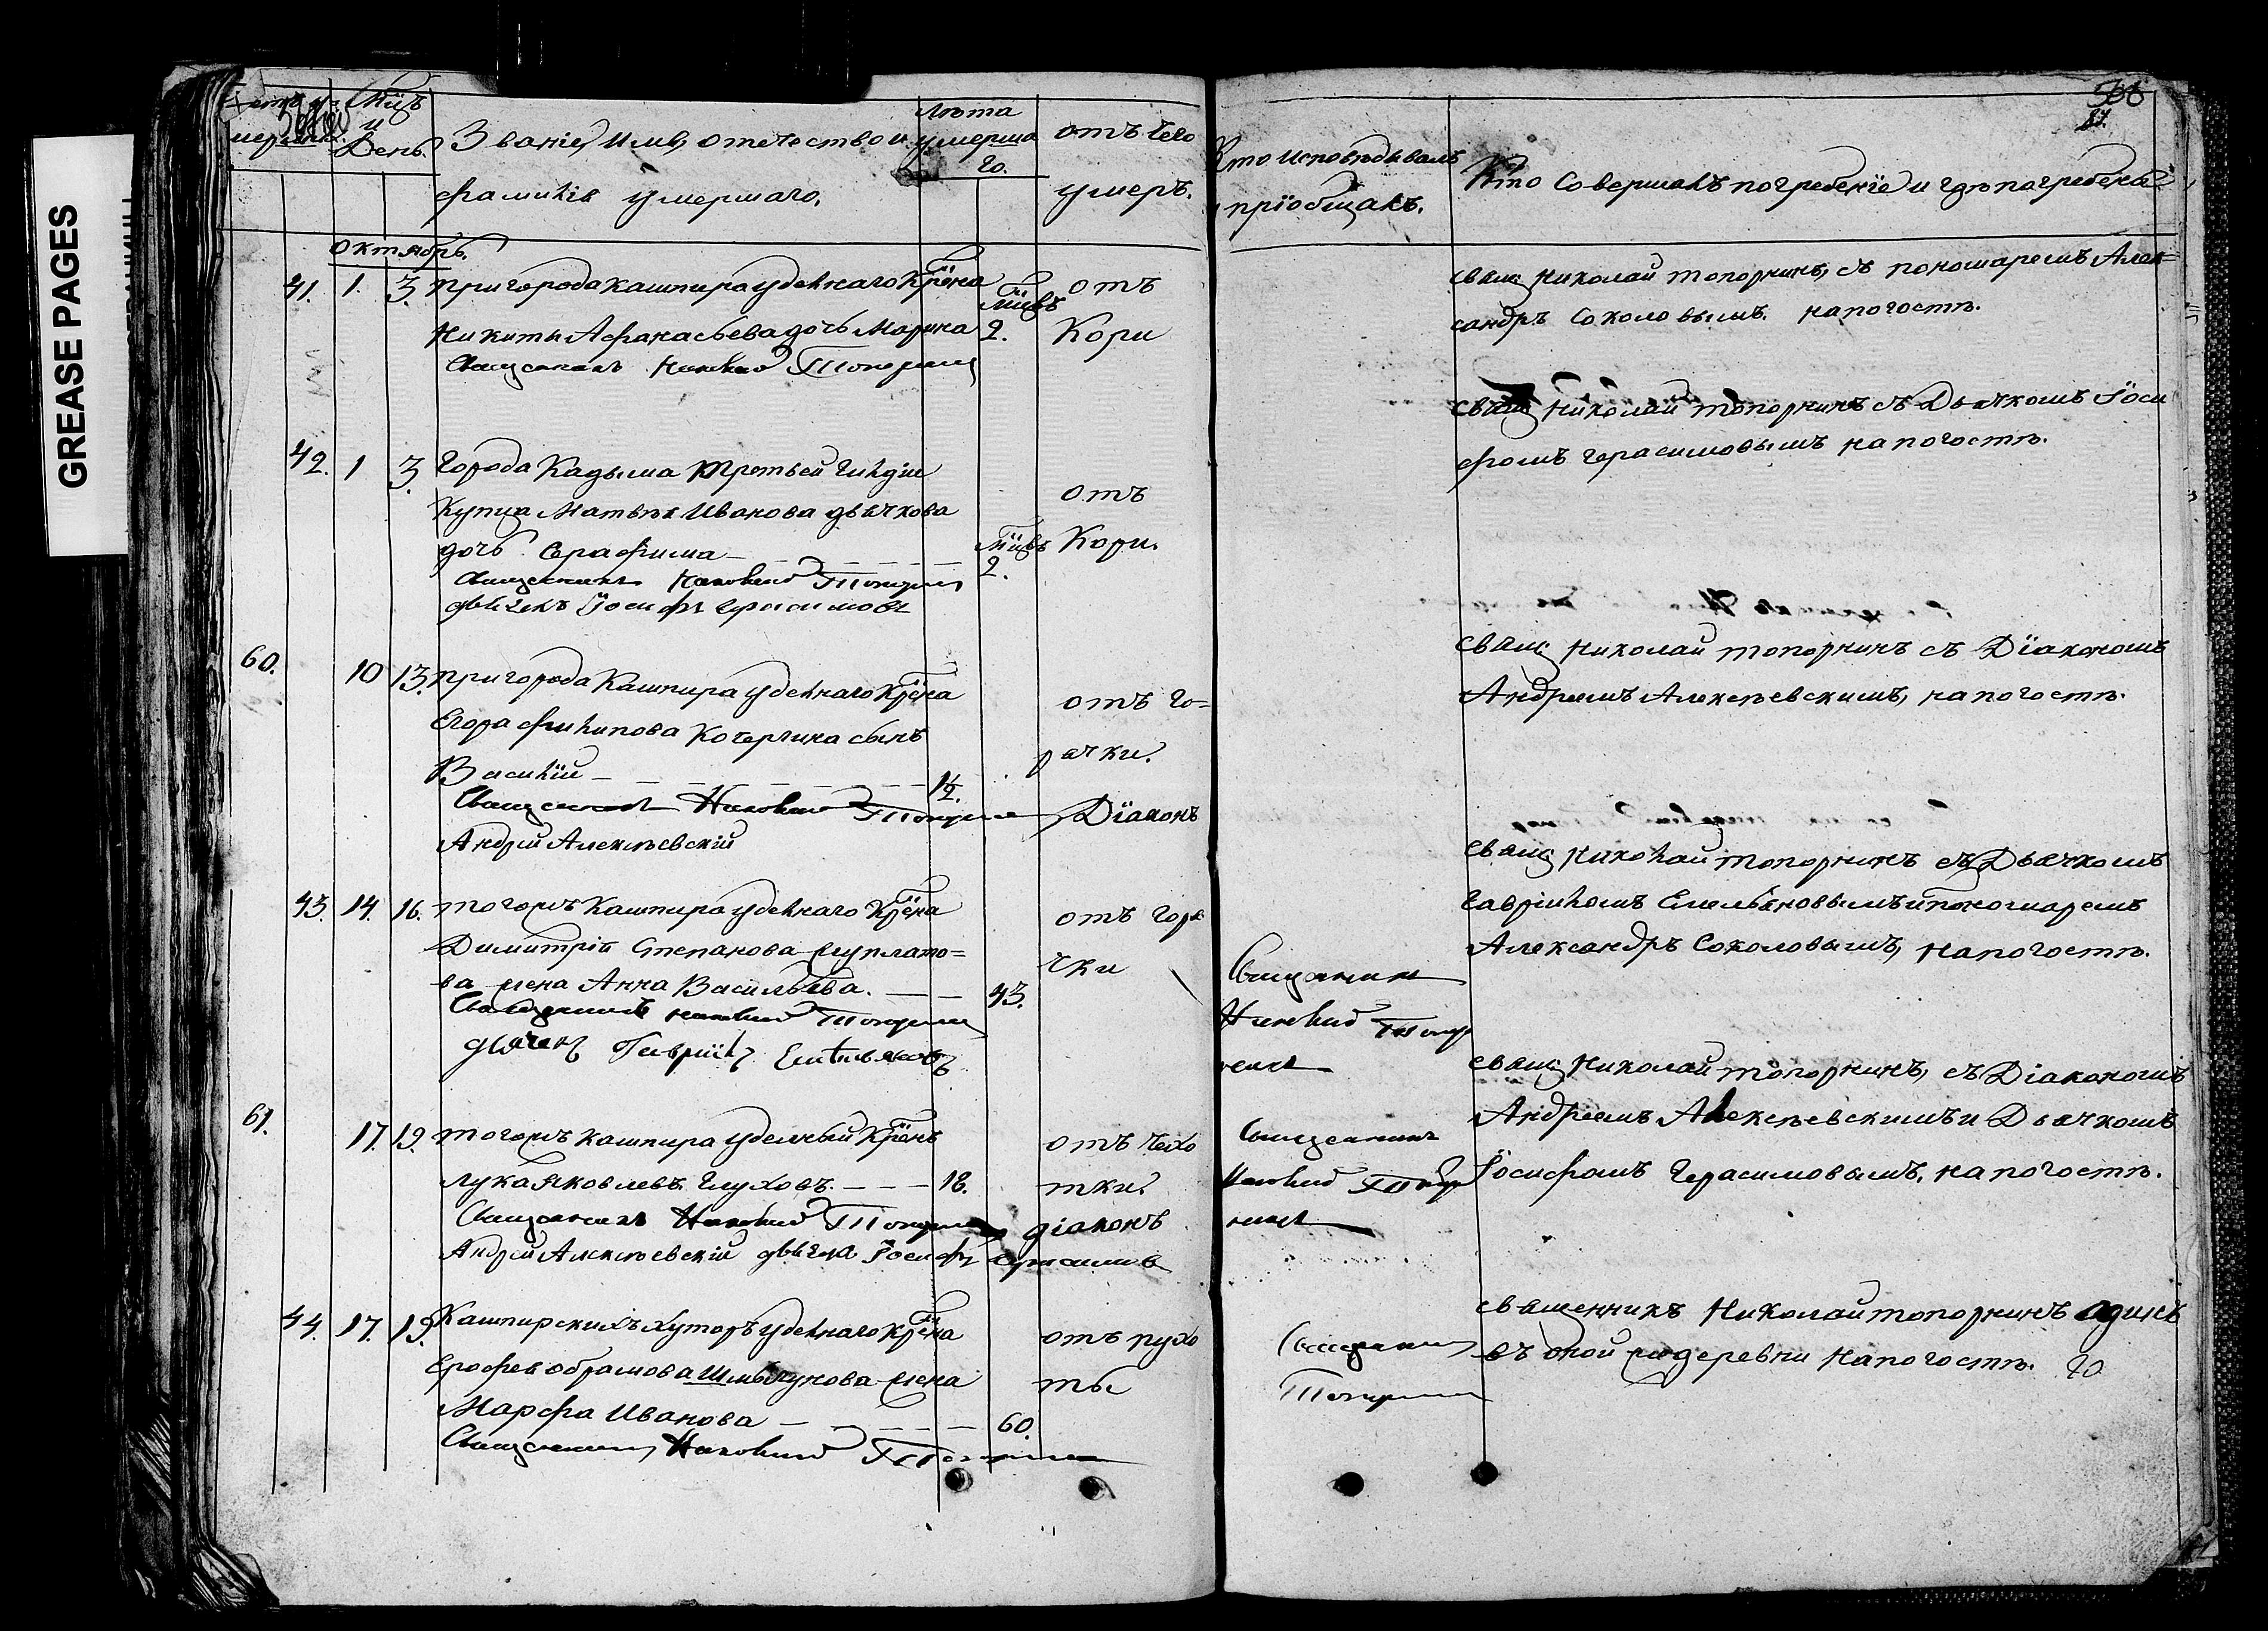 GREASE PAGES
Мцъ
и
День.
Званіе, Имя, отечество и
фамилія умершаго.
Лѣта
умерша
го.
отъ чего
умеръ.
Кто исповѣдывалъ
и пріобщалъ.
Кто Совершалъ погребеніе и гдѣ погребены
568
87.
Октябрь.
41. 1. 3. пригорода кашпира удѣльнаго Крѣна
Никиты Афанасьева дочь Марина
Мцвъ
2.
отъ
Кори
Священникъ Николай Топорнинъ
свящ Николай топорнинъ, съ пономаремъ Алек=
сандръ Соколовымъ. на погостѣ.
42. 1 3. Города Кадыма третьей гильдіи
Купца Матвѣя Иванова дьячкова
дочь Серафима
Мцвъ
2.
отъ
Кори.
Священникъ Николай Топорнинъ
дьячекъ Іосифъ Герасимовъ
свящ Николай топорнинъ съ Дьячкомъ Іоси
фомъ герасимовымъ на погостѣ.
60. 10 13. пригорода Кашпира удѣльнаго крѣна
Егора филипова Кочергина сынъ
Василій 1½.
отъ го=
рячки.
Священникъ Николай Топорнинъ Діаконъ
Андрей Алексѣевскій
свящ Николай топорнинъ съ Діакономъ
Андреемъ Алексѣевскимъ, на погостѣ.
43. 14. 16. тогожъ Кашпира удѣльнаго Крѣна
Димитрій Степанова
ва жена Анна Васильева. 43.
отъ горя
чки
Священникъ Николай Топорнинъ
дьячекъ Гавріилъ Емельяновъ
Священникъ
Николай Топор
нинъ
свящ Николай топорнинъ съ Дьячкомъ
Гавріиломъ Емельяновымъ и пономаремъ
Александръ Соколовымъ, на погостѣ.
61. 17. 19. тогожъ кашпира удельный Крѣнъ
лука Яковлевъ Глуховъ 18.
отъ чехо
тки.
Священникъ Николай Топорнинъ діаконъ
Андрей Алексѣевскій дьячекъ Іосифъ Герасимовъ
Священникъ
Николай Топор
нинъ
свящ Николай топорнинъ, съ Діакономъ
Андреемъ Алексѣевскимъ и Дьячкомъ
Іосифомъ Герасимовымъ, на погостѣ.
44. 17. 19. Кашпирскихъ хуторъ удѣльнаго крѣна
Ерофея обрамова жена
Марфа Иванова 60.
отъ пухо
ты
Священникъ Николай Топорнинъ
Священникъ
Топорнинъ
священникъ Николай топорнинъ одинъ
въ оной же деревни на погостѣ.